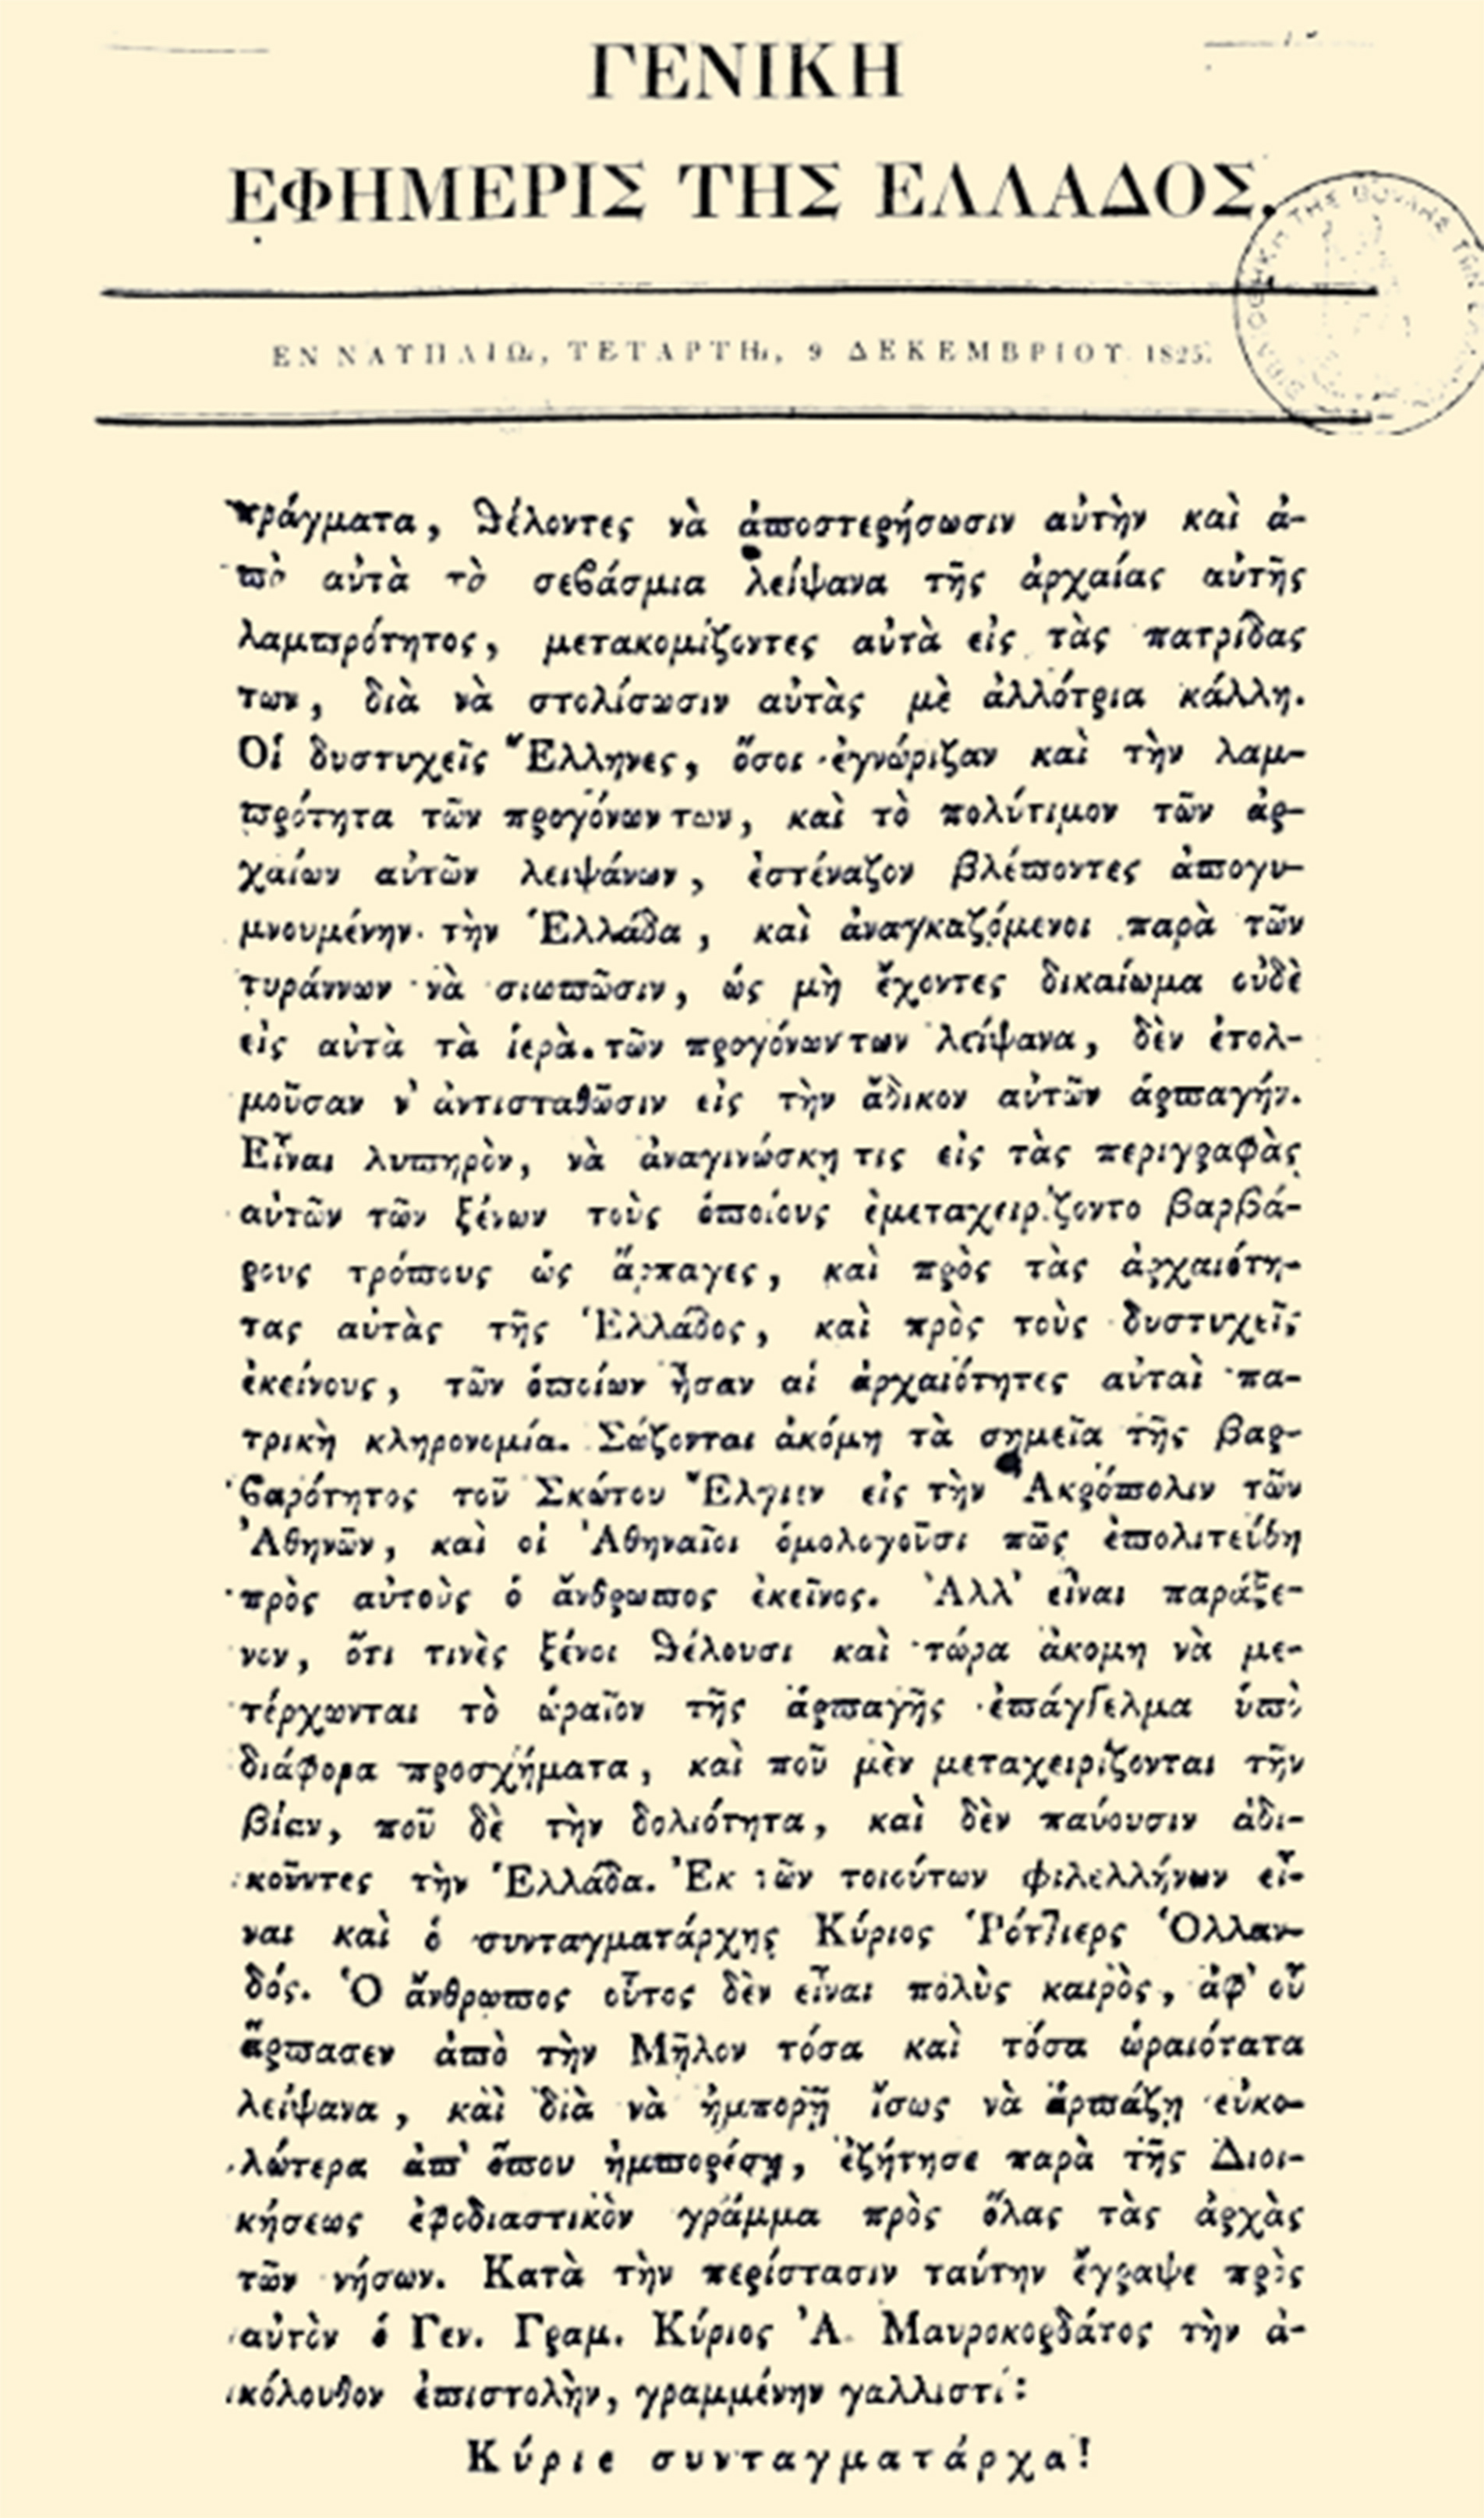 ΓΕΝΙΚΗ
ΕΦΗΜΕΡΙΣ ΤΗΣ ΕΛΛΑΔΟΣ.
ΕΝ ΝΑΥΠΛΙΩι, ΤΕΤΑΡΤΗι, 9 ΔΕΚΕΜΒΡΙΟΥ 1825.
πράγματα, θέλοντες νὰ ἀποστερήσωσιν αὐτὴν καὶ ἀ-
πὸ αὐτὰ τὸ σεβάσμια λείψανα τῆς ἀρχαίας αὐτῆς
λαμπρότητος, μετακομίζοντες αὐτὰ εἰς τὰς πατρίδας
των, διὰ νὰ στολίσωσιν αὐτὰς μὲ ἀλλότρια κάλλη.
Οἱ δυστυχεῖς Ἕλληνες, ὅσοι ἐγνώριζαν καὶ τὴν λαμ-
πρότητα τῶν προγόνων των, καὶ τὸ πολύτιμον τῶν ἀρ-
χαίων αὐτῶν λειψάνων, ἐστέναζον βλέποντες ἀπογυ-
μνουμένην τὴν Ἑλλάδα, καὶ ἀναγκαζόμενοι παρὰ τῶν
τυράννων νὰ σιωπῶσιν, ὡς μὴ ἔχοντες δικαίωμα οὐδὲ
εἰς αὐτὰ τὰ ἱερὰ τῶν προγόνων των λείψανα, δὲν ἐτολ-
μοῦσαν ν' ἀντισταθῶσιν εἰς τὴν ἄδικον αὐτῶν ἁρπαγήν.
Εἶναι λυπηρὸν, νὰ ἀναγινώσκῃ τις εἰς τὰς περιγραφὰς
αὐτῶν τῶν ξένων τοὺς ὁποίους ἐμεταχειρίζοντο βαρβά-
ρους τρόπους ὡς ἅρπαγες, καὶ πρὸς τὰς ἀρχαιότη-
τας αὐτὰς τῆς Ἑλλάδος, καὶ πρὸς τοὺς δυστυχεῖς
ἐκείνους, τῶν ὁποίων ἦσαν αἱ ἀρχαιότητες αὐταὶ πα-
τρικὴ κληρονομία. Σώζονται ἀκόμη τὰ σημεῖα τῆς βαρ-
βαρότητος τοῦ Σκώτου Ἔλγιν εἰς τὴν Ἀκρόπολιν τῶν
Ἀθηνῶν, καὶ οἱ Ἀθηναῖοι ὁμολογοῦσι πῶς ἐπολιτεύθη
πρὸς αὐτοὺς ὁ ἄνθρωπος ἐκεῖνος. Ἀλλ' εἶναι παράξε-
νον, ὅτι τινὲς ξένοι θέλουσι καὶ τώρα ἀκομη νὰ με-
τέρχωνται τὸ ὡραῖον τῆς ἁρπαγῆς ἐπάγγελμα ὑπὸ
διάφορα προσχήματα, καὶ ποῦ μὲν μεταχειρίζονται τὴν
βίαν, ποῦ δὲ τὴν δολιότητα, καὶ δὲν παύουσιν ἀδι-
κοῦντες τὴν Ἑλλάδα. Ἐκ τῶν τοιούτων φιλελλήνων εἶ-
ναι καὶ ὁ συνταγματάρχης Κύριος Ῥόττιερς Ὁλλαν-
δός. Ὁ ἄνθρωπος οὗτος δὲν εἶναι πολὺς καιρὸς, ἀφ' οὗ
ἅρπασεν ἀπὸ τὴν Μῆλον τόσα καὶ τόσα ὡραιότατα
λείψανα, καὶ διὰ νὰ ἠμπορῇ ἴσως νὰ ἁρπάζῃ εὐκο-
λώτερα ἀπ' ὅπου ἠμπορέσῃ, ἐζήτησε παρὰ τῆς Διοι-
κήσεως ἐφοδιαστικὸν γράμμα πρὸς ὅλας τὰς ἀρχὰς
τῶν νήσων. Κατὰ τὴν περίστασιν ταύτην ἔγραψε πρὸς
αὐτὸν ὁ Γεν. Γραμ. Κύριος Ἀ. Μαυροκορδάτος τὴν ἀ-
κόλουθον ἐπιστολὴν, γραμμένην γαλλιστί:
Κύριε συνταγματάρχα!